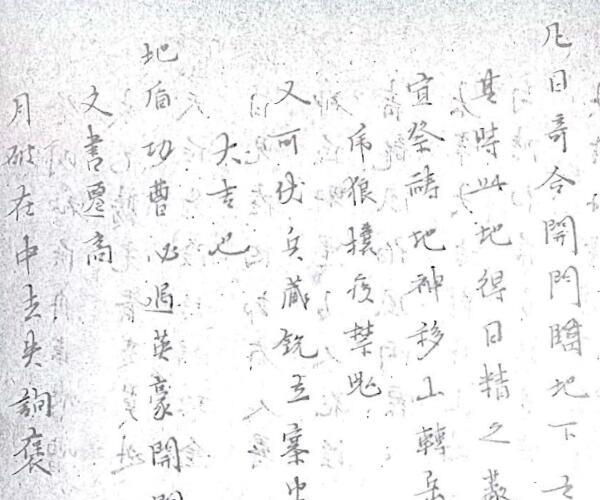 凡日奇合開門臨地下
其時此地得日精之
宜祭禱地神移山轉
虎狼撲疫禁
又可伏兵藏銳立寨
大吉也
地盾功曹必過英豪開
文書遷高
月破在中主失詞